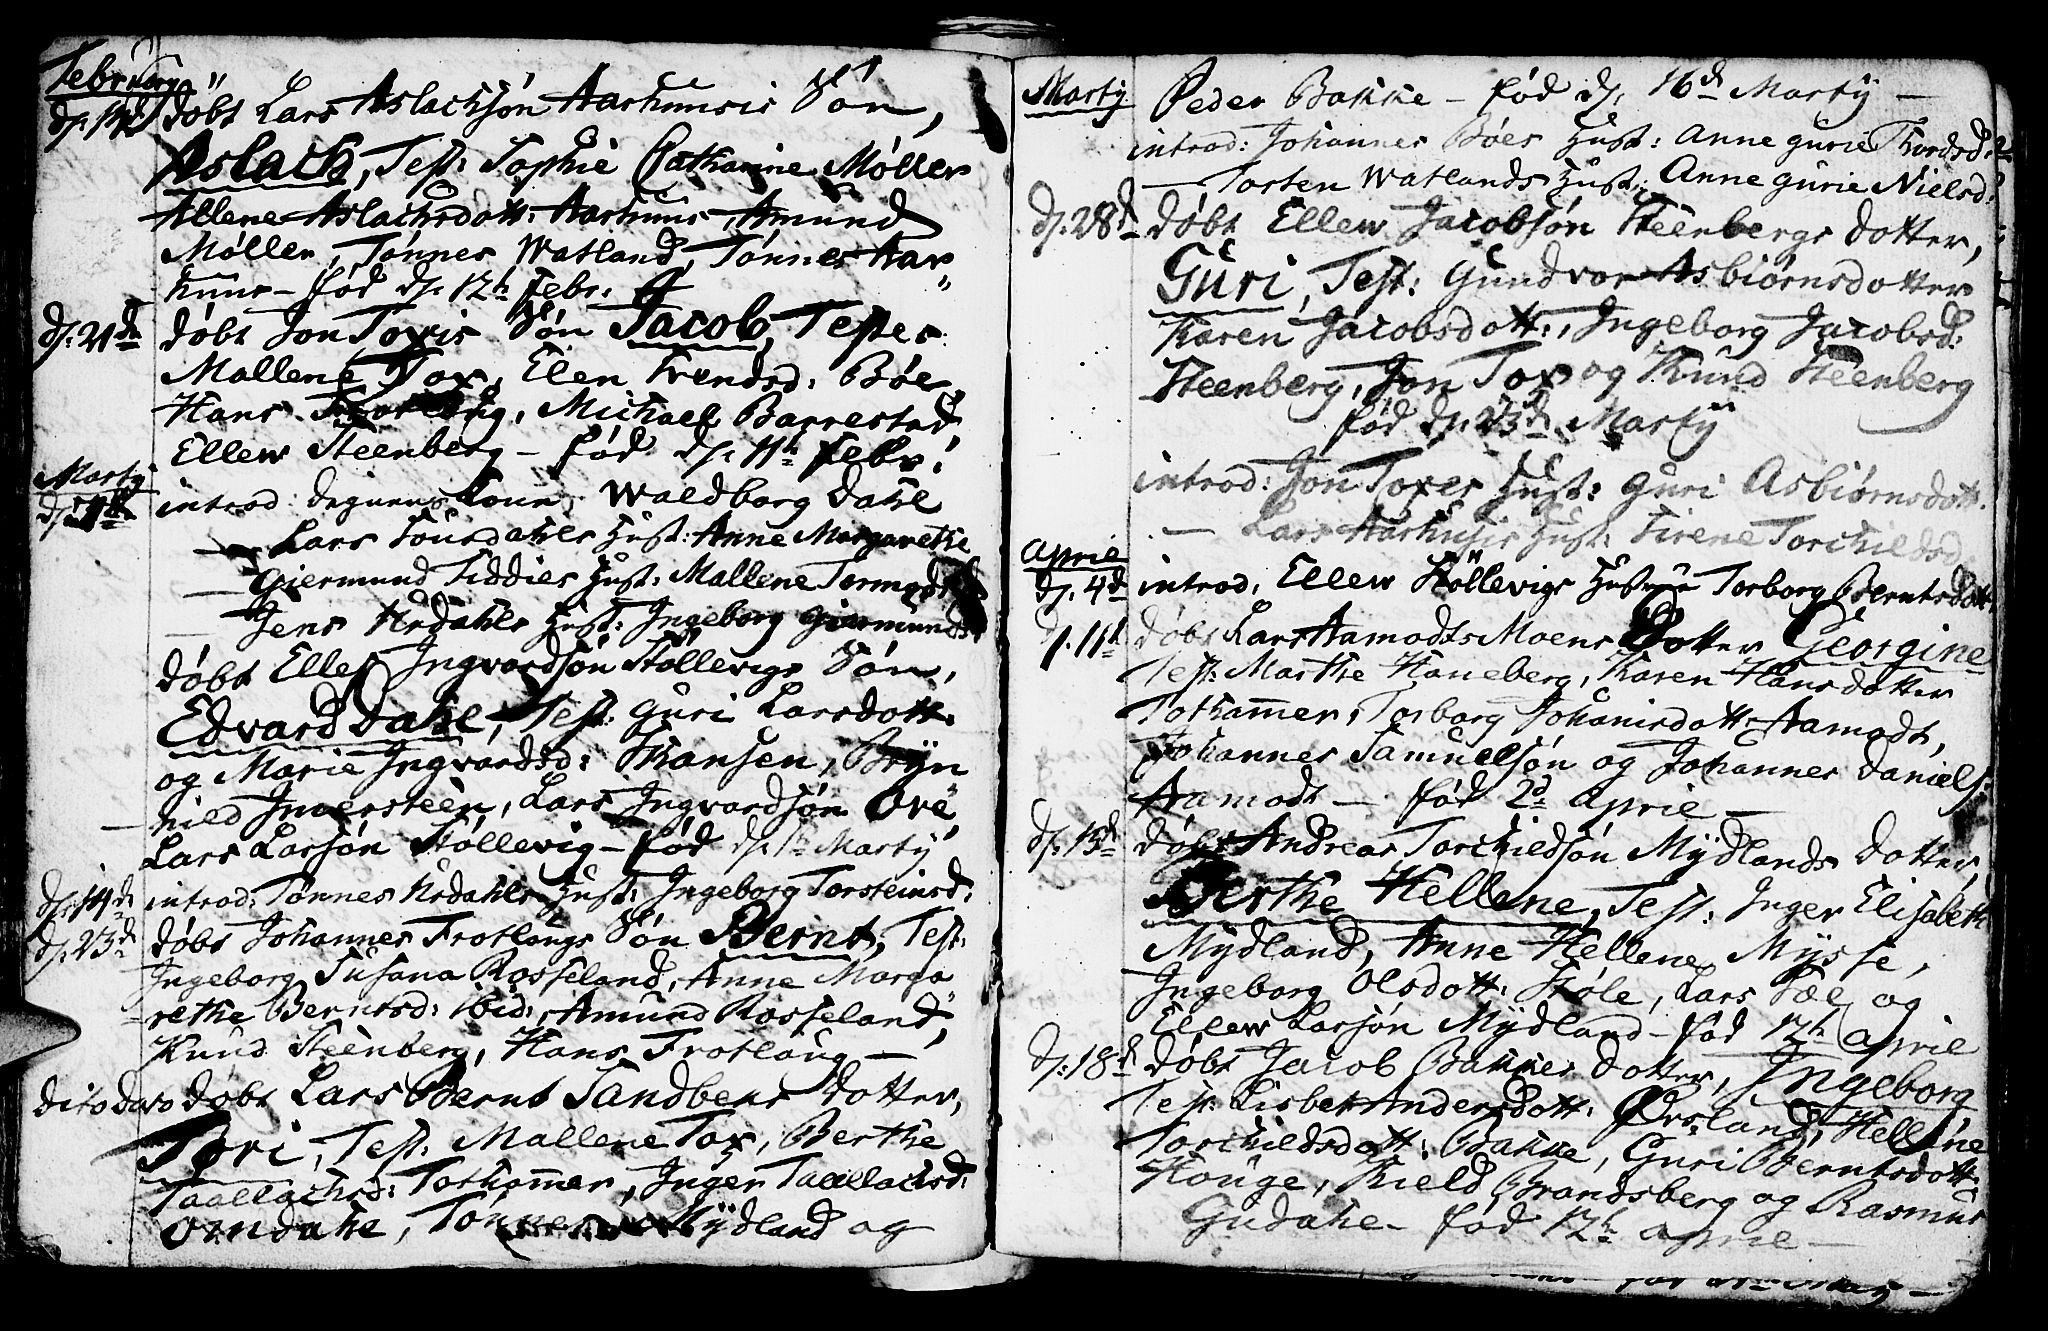 Februarij
d. 14d døbt Lars Aslachsøn Aarhuusis Søn,
Aslach, Test: Sophie Catharine Møller
Allene Aslachsdatt: Aarhuus, Amund
Møller, Tønnes Watland, Tønnes Aar-
huus – fød d. 12h Febr:
d. 21de døbt Jon Toxis Søn Jacob, Testes
Mallene Tox, Elen Trendsd: Böe,
Hans Frotloug, Michael Barrestad
Ellew Steenberg – fød d. 11h Febr:
Martÿ
introd: Degnens Kone, Waldborg Dahl
— Lars Sousdahls Hust: Anne Margarethe
— Giermund Tiddies Hust: Mallene Tormods
— Jens Urdahls Hust: Ingeborg Giermunds
døbt Ellef Ingvardsøn Støllevigs Søn,
Edvard Dahl, Test: Guri Larsdott:
og Marie Ingvardsd: Thansen, Brÿn
hild Ingersteen, Lars Ingvardsøn Ove,
Lars Larsøn Støllevig – fød d. 1h Martÿ
d. 14d introd: Tønnes Urdahls Hust: Ingeborg Torsteinsd:
d. 23d døbt Johannes Frotlougs Søn Bernt, Test:
Ingeborg Susana Rosseland, Anne Marga
rethe Berntsd: ibid:, Amund Rosseland,
Knud Steenberg, Hans Frotloug —
dito dato døbt Lars Bernt Sandbeks Dotter,
Tori, Test: Mallene Tox, Berthe
Taallachsd: Tothammer, Inger Taallachsd:
Orndahl, Tønnes Mÿdland og
Martÿ Peder Bakke – fød d. 16d Martÿ —
introd: Johannes Böes Hust: Anne Gurie Thordsd:
— Torsten Watlands Hust: Anne Gurie Nielsd:
d. 28d døbt Ellew Jacobsøn Steenbergs Dotter,
Guri, Test: Gundvor Asbiørnsdotter
Karen Jacobsdott:, Ingeborg Jacobsd:
Steenberg, Jon Tox og Knud Steenberg
fød d. 23d Martÿ
introd: Jon Toxes Hust: Guri Asbiørnsdott.
— Lars Aarhusis Hust: Sirene Torchildsd
April
d. 4d introd, Ellew Støllevigs Hustrue Torborg Berntsdott
d. 11h døbt Lars Aamodts Moens Dotter Georgine
Test: Marthe Haneberg, Karen Hansdotter
Tothammer, Torborg Johanisdott: Aamodt,
Johannes Samuelsøn og Johannes Daniels:
Aamodt — fød 2d April —
d. 15d døbt Andreas Torchildsøn Mÿdlands Dotter,
Berthe Hellene, Test: Inger Elisabeth
Mÿdland, Anne Hellene Mÿsse,
Ingeborg Olsdott: Støle, Lars Sæl og
Ellew Larsøn Mÿdland – fød 12h April
d. 18d døbt Jacob Bakkes Dotter, Ingeborg
Test: Lisbet Andersdott: Ørsland, Hellene
Torchildsdott: Bakke, Guri Berntsdott
Houge, Kield Brandsberg og Rasmus
Gudahl – fød 12h April —